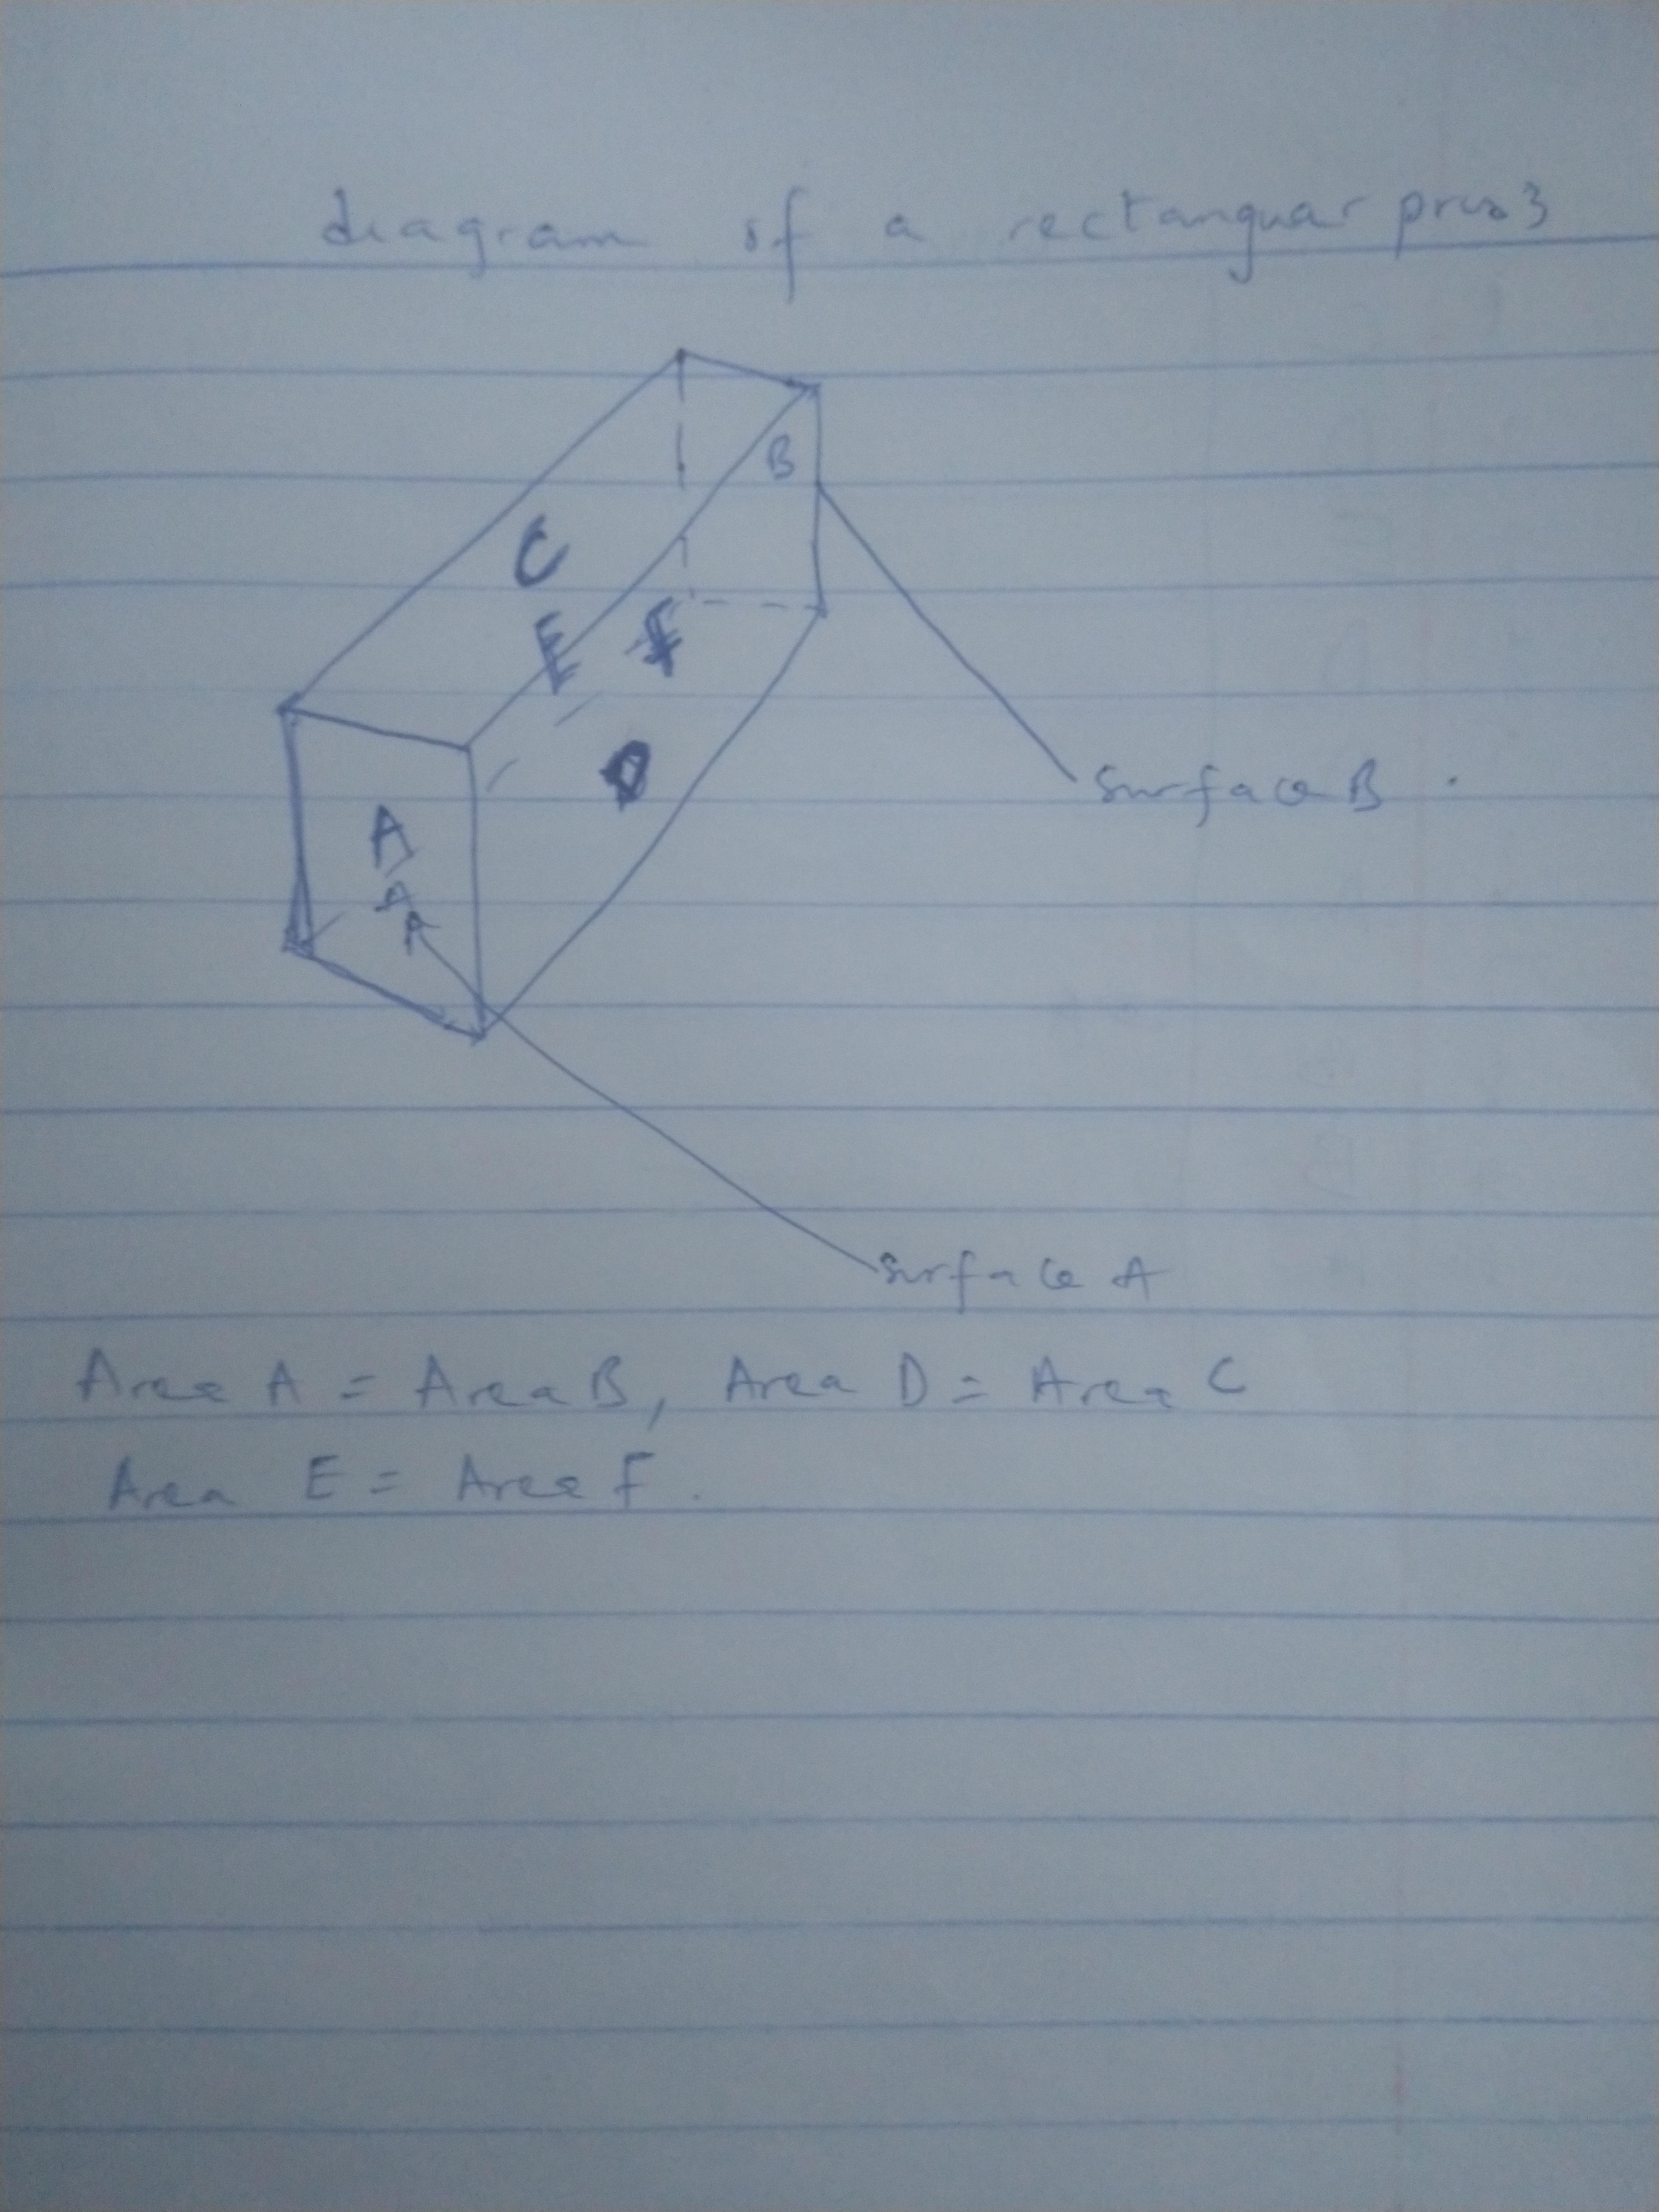 diagram of a rectanguar
B
C
E F
D
A
A
A
surface B .
surface A
Area A = Area B, Area D = Area C
Area E = Area F .